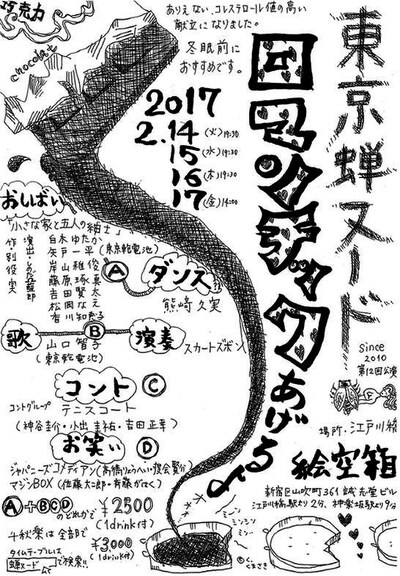 巧克力
chocolat
ありえない、コレステロール値の高い
献立になりました。
冬眠前に
おすすめです。
東京蝉ヌード
since
2010
第12回公演
ロマンチックあげるよ
2017
2.14(火)19:30
15(水)19:30
16(木)19:30
17(金)14:00
おしばい
「小さな家と五人の紳士」
作 別役実
演出
白木ゆたか
矢戸一平(東京乾電池)
岸山雅俊
藤原琢真
吉田賢太
松岡なえ
有川知
A
ダンス
熊崎久実
歌
B
演奏
山口智子
(東京乾電池)
スカートズボン
コント
C
コントグループ テニスコート
(神谷圭介・小出圭祐・吉田正幸)
お笑い
D
ジャパニーズコメディアン(高橋りょうへい・
マジンBOX(佐藤大二郎・斉藤がてく)
A+BCD
のどれかで ¥2500
(1drink付)
千秋楽は全部で
¥3,000
(1drink付)
タイムテーブルは
蝉ヌード
で検索!!
場所・江戸川橋
絵空箱
新宿区山吹町361誠志堂ビル
江戸川橋駅より2分、神楽坂駅より9分
ミンミン
ミー
©くまさき